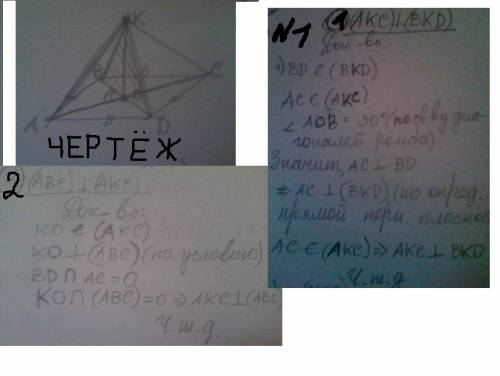 K
B
C
O
A
D
ЧЕРТЁЖ
N1 (1 (AKC)⊥(BKD)
Док-во
1) BD ∈ (BKD)
AC ∈ (AKC)
∠ AOB = 90° (по св-ву диа-
гоналей ромба)
Значит, AC ⊥ BD
⇒ AC ⊥ (BKD) (по опред.
прямой перп. плоскос
AC ∈ (AKC) ⇒ AKC ⊥ BKD
Ч.т.д.
2 (ABC) ⊥ (AKC)
Док-во:
KO ∈ (AKC)
KO ⊥ (ABC) (по условию)
BD ∩ AC = O
KO ∩ (ABC) = O ⇒ AKC ⊥ (ABC)
Ч.т.д.